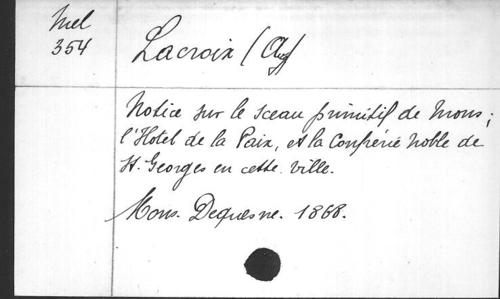 Mel
354
Lacroix (Aug)
Notice sur le sceau primitif de Mons;
l'Hotel de la Paix, et la Confrérie Noble de
St. Georges en cette ville.
Mons. Dequesne. 1868.